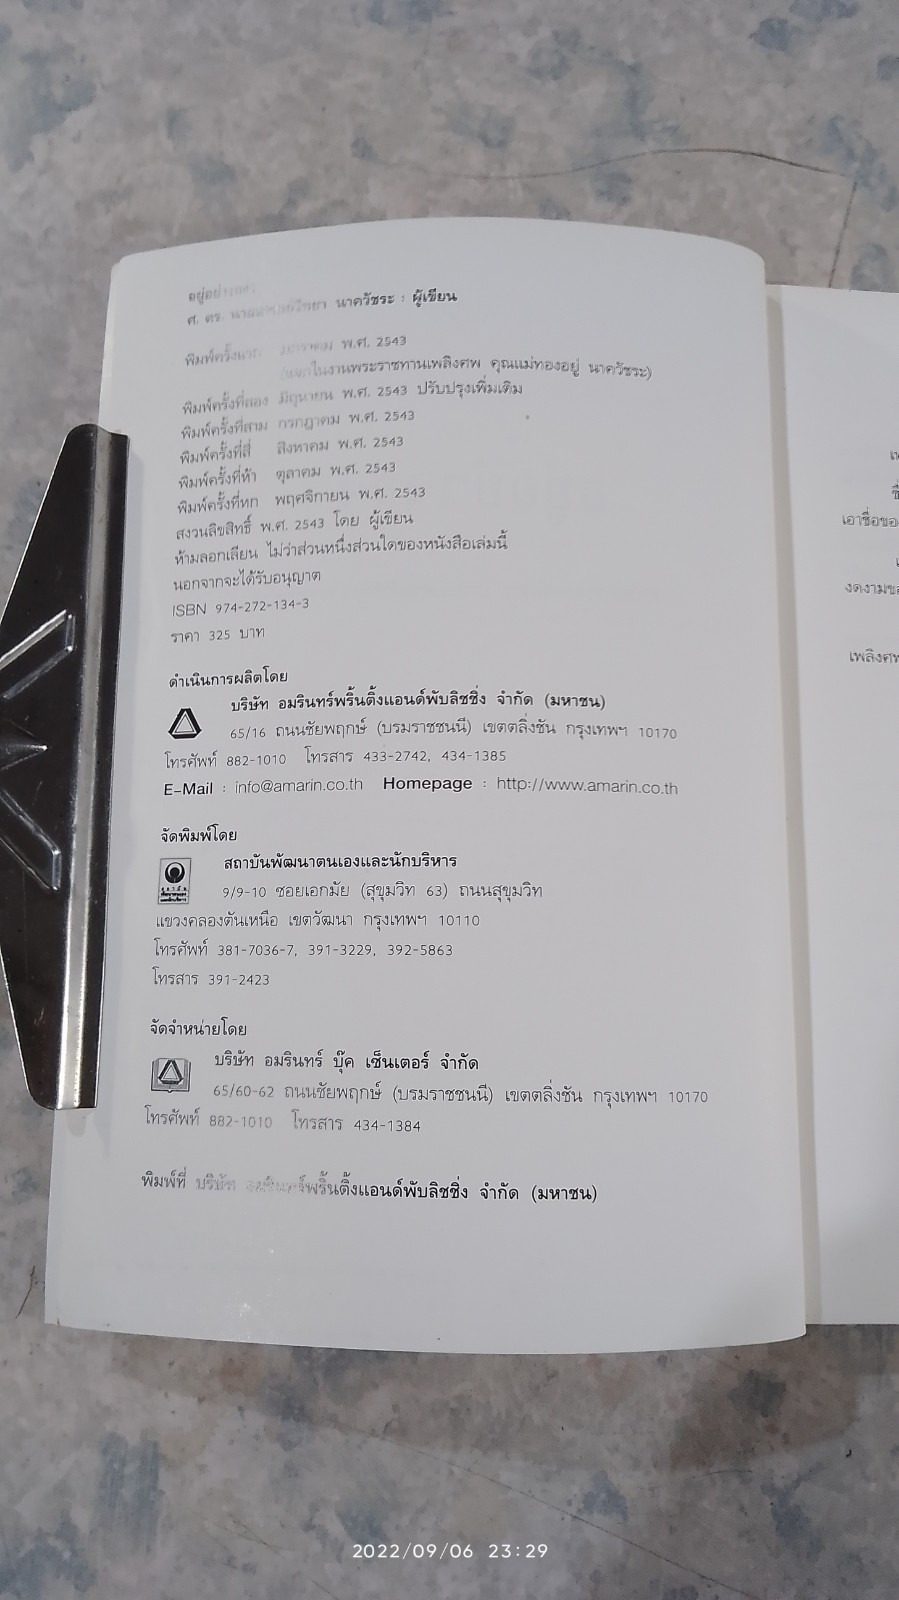 ศ. ดร. นายแพทย์วิทยา นาควัชระ : ผู้เขียน
พิมพ์ครั้งแรก มกราคม พ.ศ. 2543
(แจกในงานพระราชทานเพลิงศพ คุณแม่ทองอยู่ นาควัชระ)
พิมพ์ครั้งที่สอง มิถุนายน พ.ศ. 2543 ปรับปรุงเพิ่มเติม
พิมพ์ครั้งที่สาม กรกฎาคม พ.ศ. 2543
พิมพ์ครั้งที่สี่ สิงหาคม พ.ศ. 2543
พิมพ์ครั้งที่ห้า ตุลาคม พ.ศ. 2543
พิมพ์ครั้งที่หก พฤศจิกายน พ.ศ. 2543
สงวนลิขสิทธิ์ พ.ศ. 2543 โดย ผู้เขียน
ห้ามลอกเลียน ไม่ว่าส่วนหนึ่งส่วนใดของหนังสือเล่มนี้
นอกจากจะได้รับอนุญาต
ISBN 974-272-134-3
ราคา 325 บาท
ดำเนินการผลิตโดย
บริษัท อมรินทร์พริ้นติ้งแอนด์พับลิชชิ่ง จำกัด (มหาชน)
65/16 ถนนชัยพฤกษ์ (บรมราชชนนี) เขตตลิ่งชัน กรุงเทพฯ 10170
โทรศัพท์ 882-1010 โทรสาร 433-2742, 434-1385
E-Mail : info@amarin.co.th Homepage : http://www.amarin.co.th
จัดพิมพ์โดย
สถาบันพัฒนาตนเองและนักบริหาร
9/9-10 ซอยเอกมัย (สุขุมวิท 63) ถนนสุขุมวิท
แขวงคลองตันเหนือ เขตวัฒนา กรุงเทพฯ 10110
โทรศัพท์ 381-7036-7, 391-3229, 392-5863
โทรสาร 391-2423
จัดจำหน่ายโดย
บริษัท อมรินทร์ บุ๊ค เซ็นเตอร์ จำกัด
65/60-62 ถนนชัยพฤกษ์ (บรมราชชนนี) เขตตลิ่งชัน กรุงเทพฯ 10170
โทรศัพท์ 882-1010 โทรสาร 434-1384
พิมพ์ที่ บริษัท อมรินทร์พริ้นติ้งแอนด์พับลิชชิ่ง จำกัด (มหาชน)
เอาชื่อของ
งดงามข
เพลิงศพ
2022/09/06 23:29